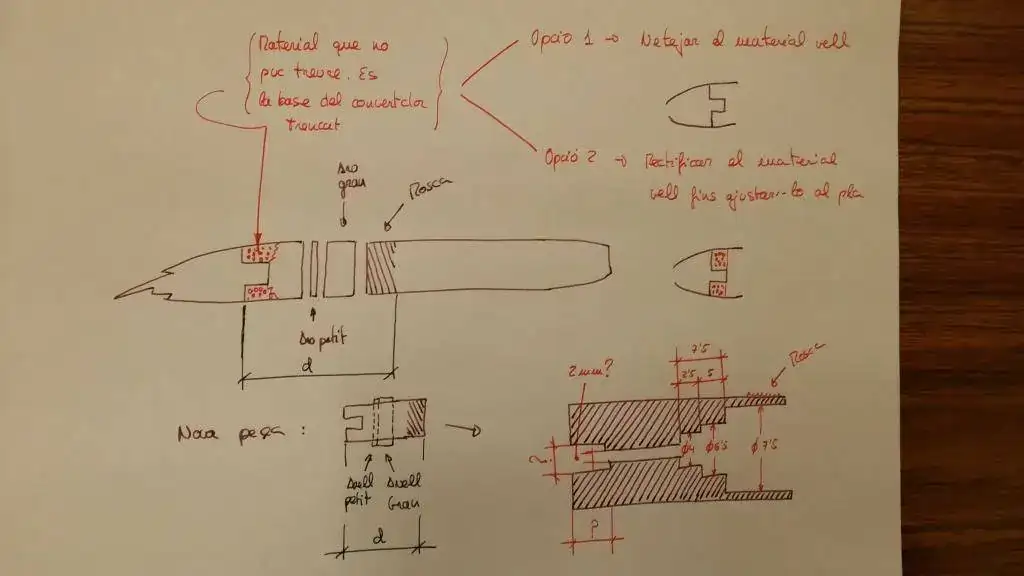 Material que no
puc treure. Es
la base del convertidor
trencat
Opció 1 → Netejar el material vell
Opció 2 → Rectificar el material
vell fins ajustar-lo al pla
Aro
gran
Rosca
Aro petit
d
Nova peça:
Anell
petit
Anell
Gran
d
2mm?
7'5
2'5
5
Rosca
?
φ4
φ6'5
φ7'5
P